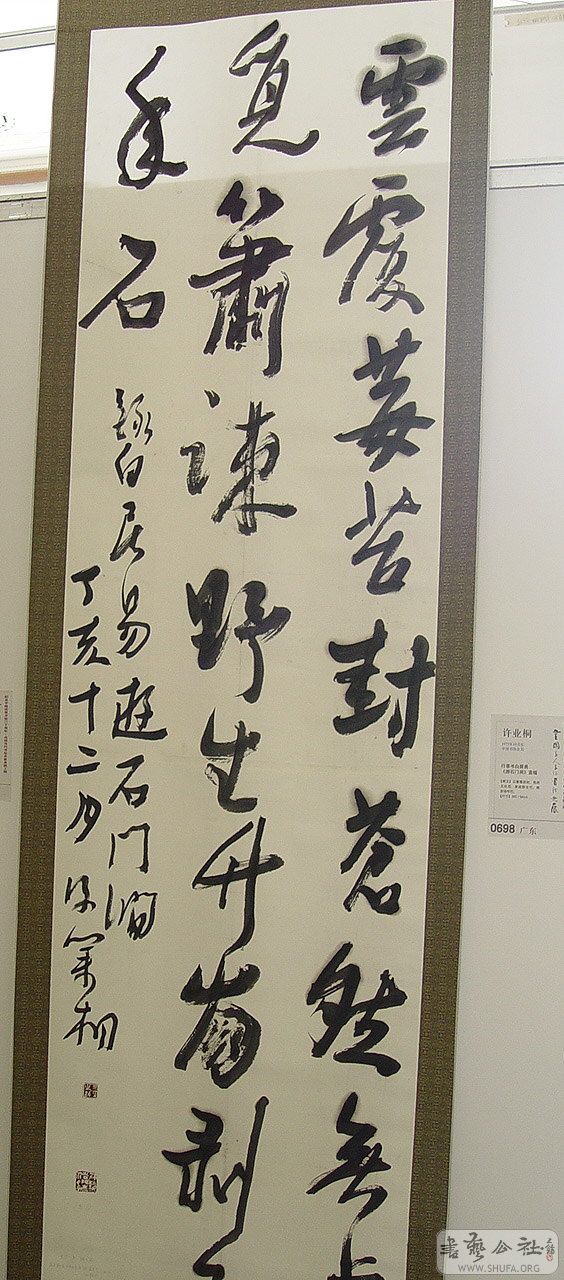 雲覆苺苔封蒼然無
覓蕭疎野生竹崩剥
年石
録白居易遊石门澗
丁亥十二月許業桐
许业桐
行草书白居易
《游石门涧》直幅
0698 广东
書藝公社
WWW.SHUFA.ORG